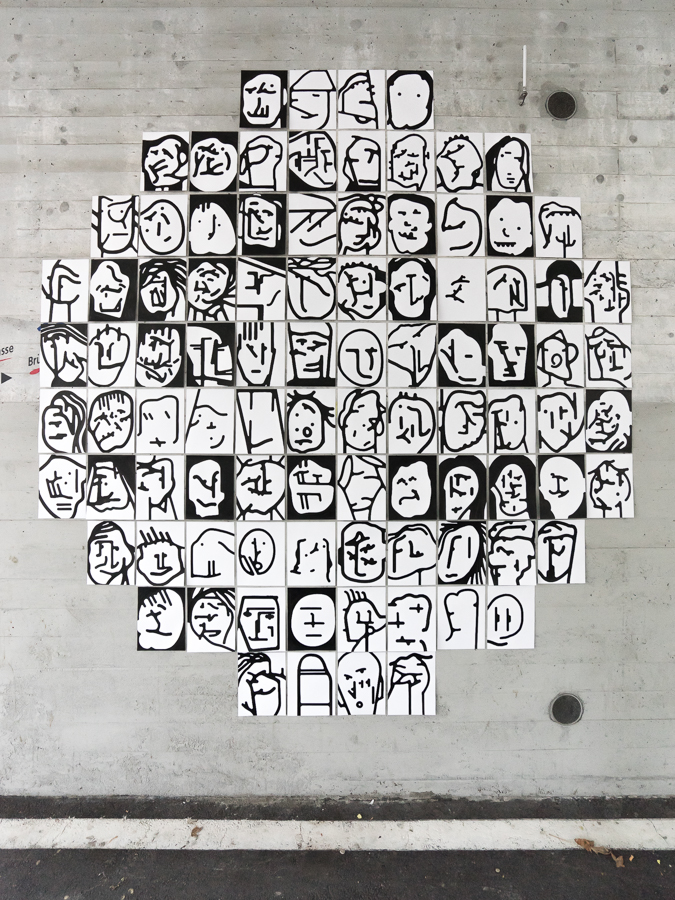 sse
Brü